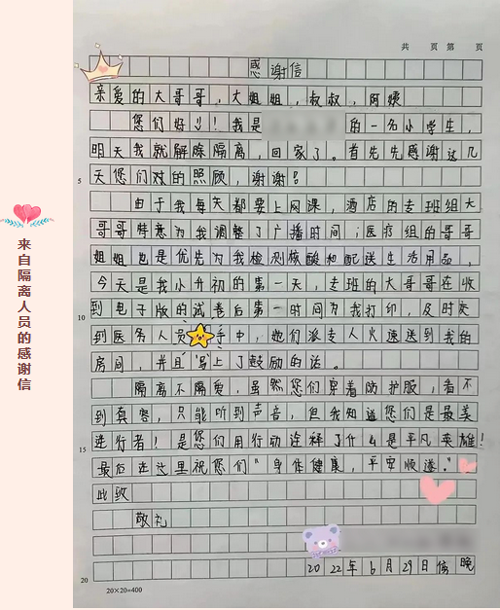 来自隔离人员的感谢信
共 页 第 页
感谢信
亲爱的大哥哥，大姐姐，叔叔，阿姨
您们好！！我是 的一名小学生，
明天我就解除隔离，回家了。首先先感谢这几
5 天您们对的照顾，谢谢！
由于我每天都要上网课，酒店的专班组大
哥哥特意为我调整了广播时间；医疗组的哥哥
姐姐也是优先为我检测核酸和配送生活用品，
今天是我小升初的第一天，专班的大哥哥在收
10 到电子版的试卷后第一时间为我打印，及时交
到医务人员手中，她们派专人火速送到我的
房间，并且写上了鼓励的话。
隔离不隔爱，虽然您们穿着防护服，看不
到真容，只能听到声音，但我知道您们是最美
15 逆行者！是您们用行动诠释了什么是平凡英雄！
最后在这里祝您们"身体健康，平安顺遂。"
此致
敬礼
20 2022年6月29日傍晚
20×20=400